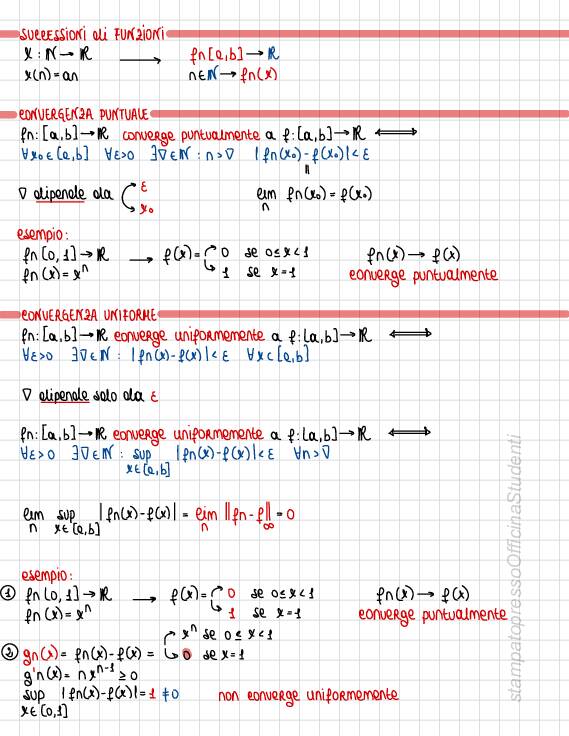 SUCCESSIONI di FUNZIONI
x : ℕ → ℝ → fn[a,b] → ℝ
x(n) = an n∈ℕ → fn(x)
CONVERGENZA PUNTUALE
fn: [a,b] → ℝ converge puntualmente a f: [a,b] → ℝ ⟺
∀x₀∈[a,b] ∀ε>0 ∃∇∈ℕ : n>∇ |fn(x₀)-f(x₀)|<ε
||
∇ dipende da ε x₀ lim n fn(x₀) = f(x₀)
esempio:
fn[0,1] → ℝ → f(x) = 0 se 0≤x<1 fn(x) → f(x)
fn(x) = xⁿ 1 se x=1 converge puntualmente
CONVERGENZA UNIFORME
fn: [a,b] → ℝ converge uniformemente a f: [a,b] → ℝ ⟺
∀ε>0 ∃∇∈ℕ : |fn(x)-f(x)|<ε ∀x∈[a,b]
∇ dipende solo da ε
fn: [a,b] → ℝ converge uniformemente a f: [a,b] → ℝ ⟺
∀ε>0 ∃∇∈ℕ : sup |fn(x)-f(x)|<ε ∀n>∇
x∈[a,b]
lim sup |fn(x)-f(x)| = lim ||fn-f||∞ = 0
n x∈[a,b] n
esempio:
① fn[0,1] → ℝ → f(x) = 0 se 0≤x<1 fn(x) → f(x)
fn(x) = xⁿ 1 se x=1 converge puntualmente
xⁿ se 0≤x<1
② gn(x) = fn(x)-f(x) = 0 se x=1
g'n(x) = n xⁿ⁻¹ ≥ 0
sup |fn(x)-f(x)| = 1 ≠0 non converge uniformemente
x∈[0,1]
stampatopressoOfficinaStudenti